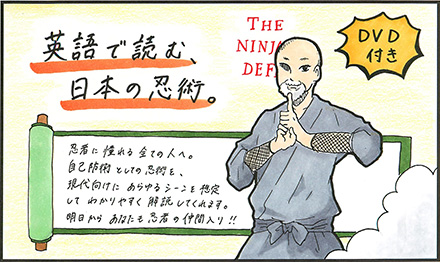 英語で読む、
日本の忍術。
THE
NINJ
DEF
DVD
付き
忍者に憧れる全ての人へ。
自己防術としての忍術を、
現代向けにあらゆるシーンを想定
してわかりやすく解説してくれます。
明日からあなたも忍者の仲間入り!!